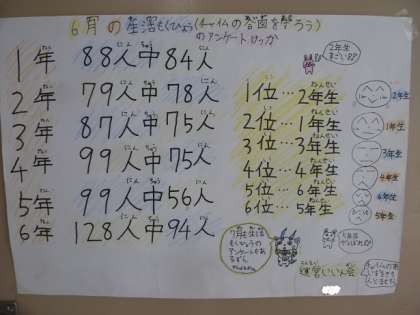 6月の生活もくひょう(チャイムの合図を守ろう)
のアンケートけっか
1年 88人中84人
2年 79人中78人
3年 87人中75人
4年 99人中75人
5年 99人中56人
6年 128人中94人
2年生
すごい!!
1位…2年生
2位…1年生
3位…3年生
4位…4年生
5位…6年生
6位…5年生
2年生
1年生
3年生
4年生
6年生
5年生
7月も生活
もくひょうの
アンケートもあ
るずら
運営いいん会